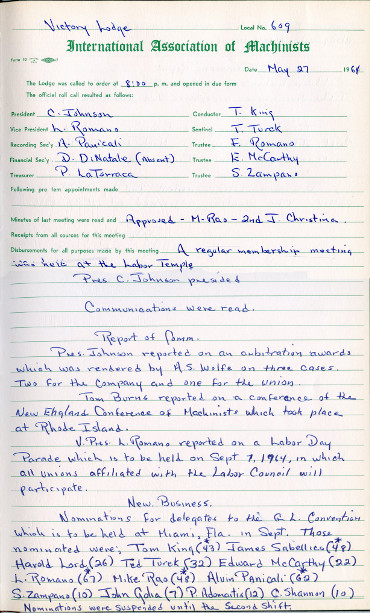 Victory Lodge Local No. 609
International Association of Machinists
Form 12
Date May 27 1964
The Lodge was called to order at 8:00 p. m. and opened in due form
The official roll call resulted as follows:
President C. Johnson Conductor T. King
Vice President L. Romano Sentinel T. Turek
Recording Sec'y A. Panicali Trustee E. Romano
Financial Sec'y D. DiNatale (absent) Trustee E. McCarthy
Treasurer P. LaTorraca Trustee S. Zampano
Following pro tem appointments made
Minutes of last meeting were read and Approved - M. Rao - 2nd J. Christina.
Receipts from all sources for this meeting
Disbursements for all purposes made by this meeting A regular membership meeting
was held at the Labor Temple
Pres C. Johnson presided
Communications were read.
Report of Comm.
Pres. Johnson reported on an arbitration awards
which was rendered by A.S. Wolfe on three cases.
Two for the Company and one for the union.
Tom Burns reported on a conference of the
New England Conference of Machinists which took place
at Rhode Island.
V. Pres. L. Romano reported on a Labor Day
Parade which is to be held on Sept 7, 1964, in which
all unions affiliated with the Labor Council will
participate.
New Business.
Nominations for delegates to the G.L. Convention
which is to be held at Miami, Fla. in Sept. Those
nominated were; Tom King (43) James Sabellico (48)
Harold Lord (26) Ted Turek (32) Edward McCarthy (22)
L. Romano (67) Mike Rao (48) Alvin Panicali (62)
S. Zampano (10) John Golia (7) P. Adomatis (12) C. Shannon (10)
Nominations were suspended until the Second Shift.